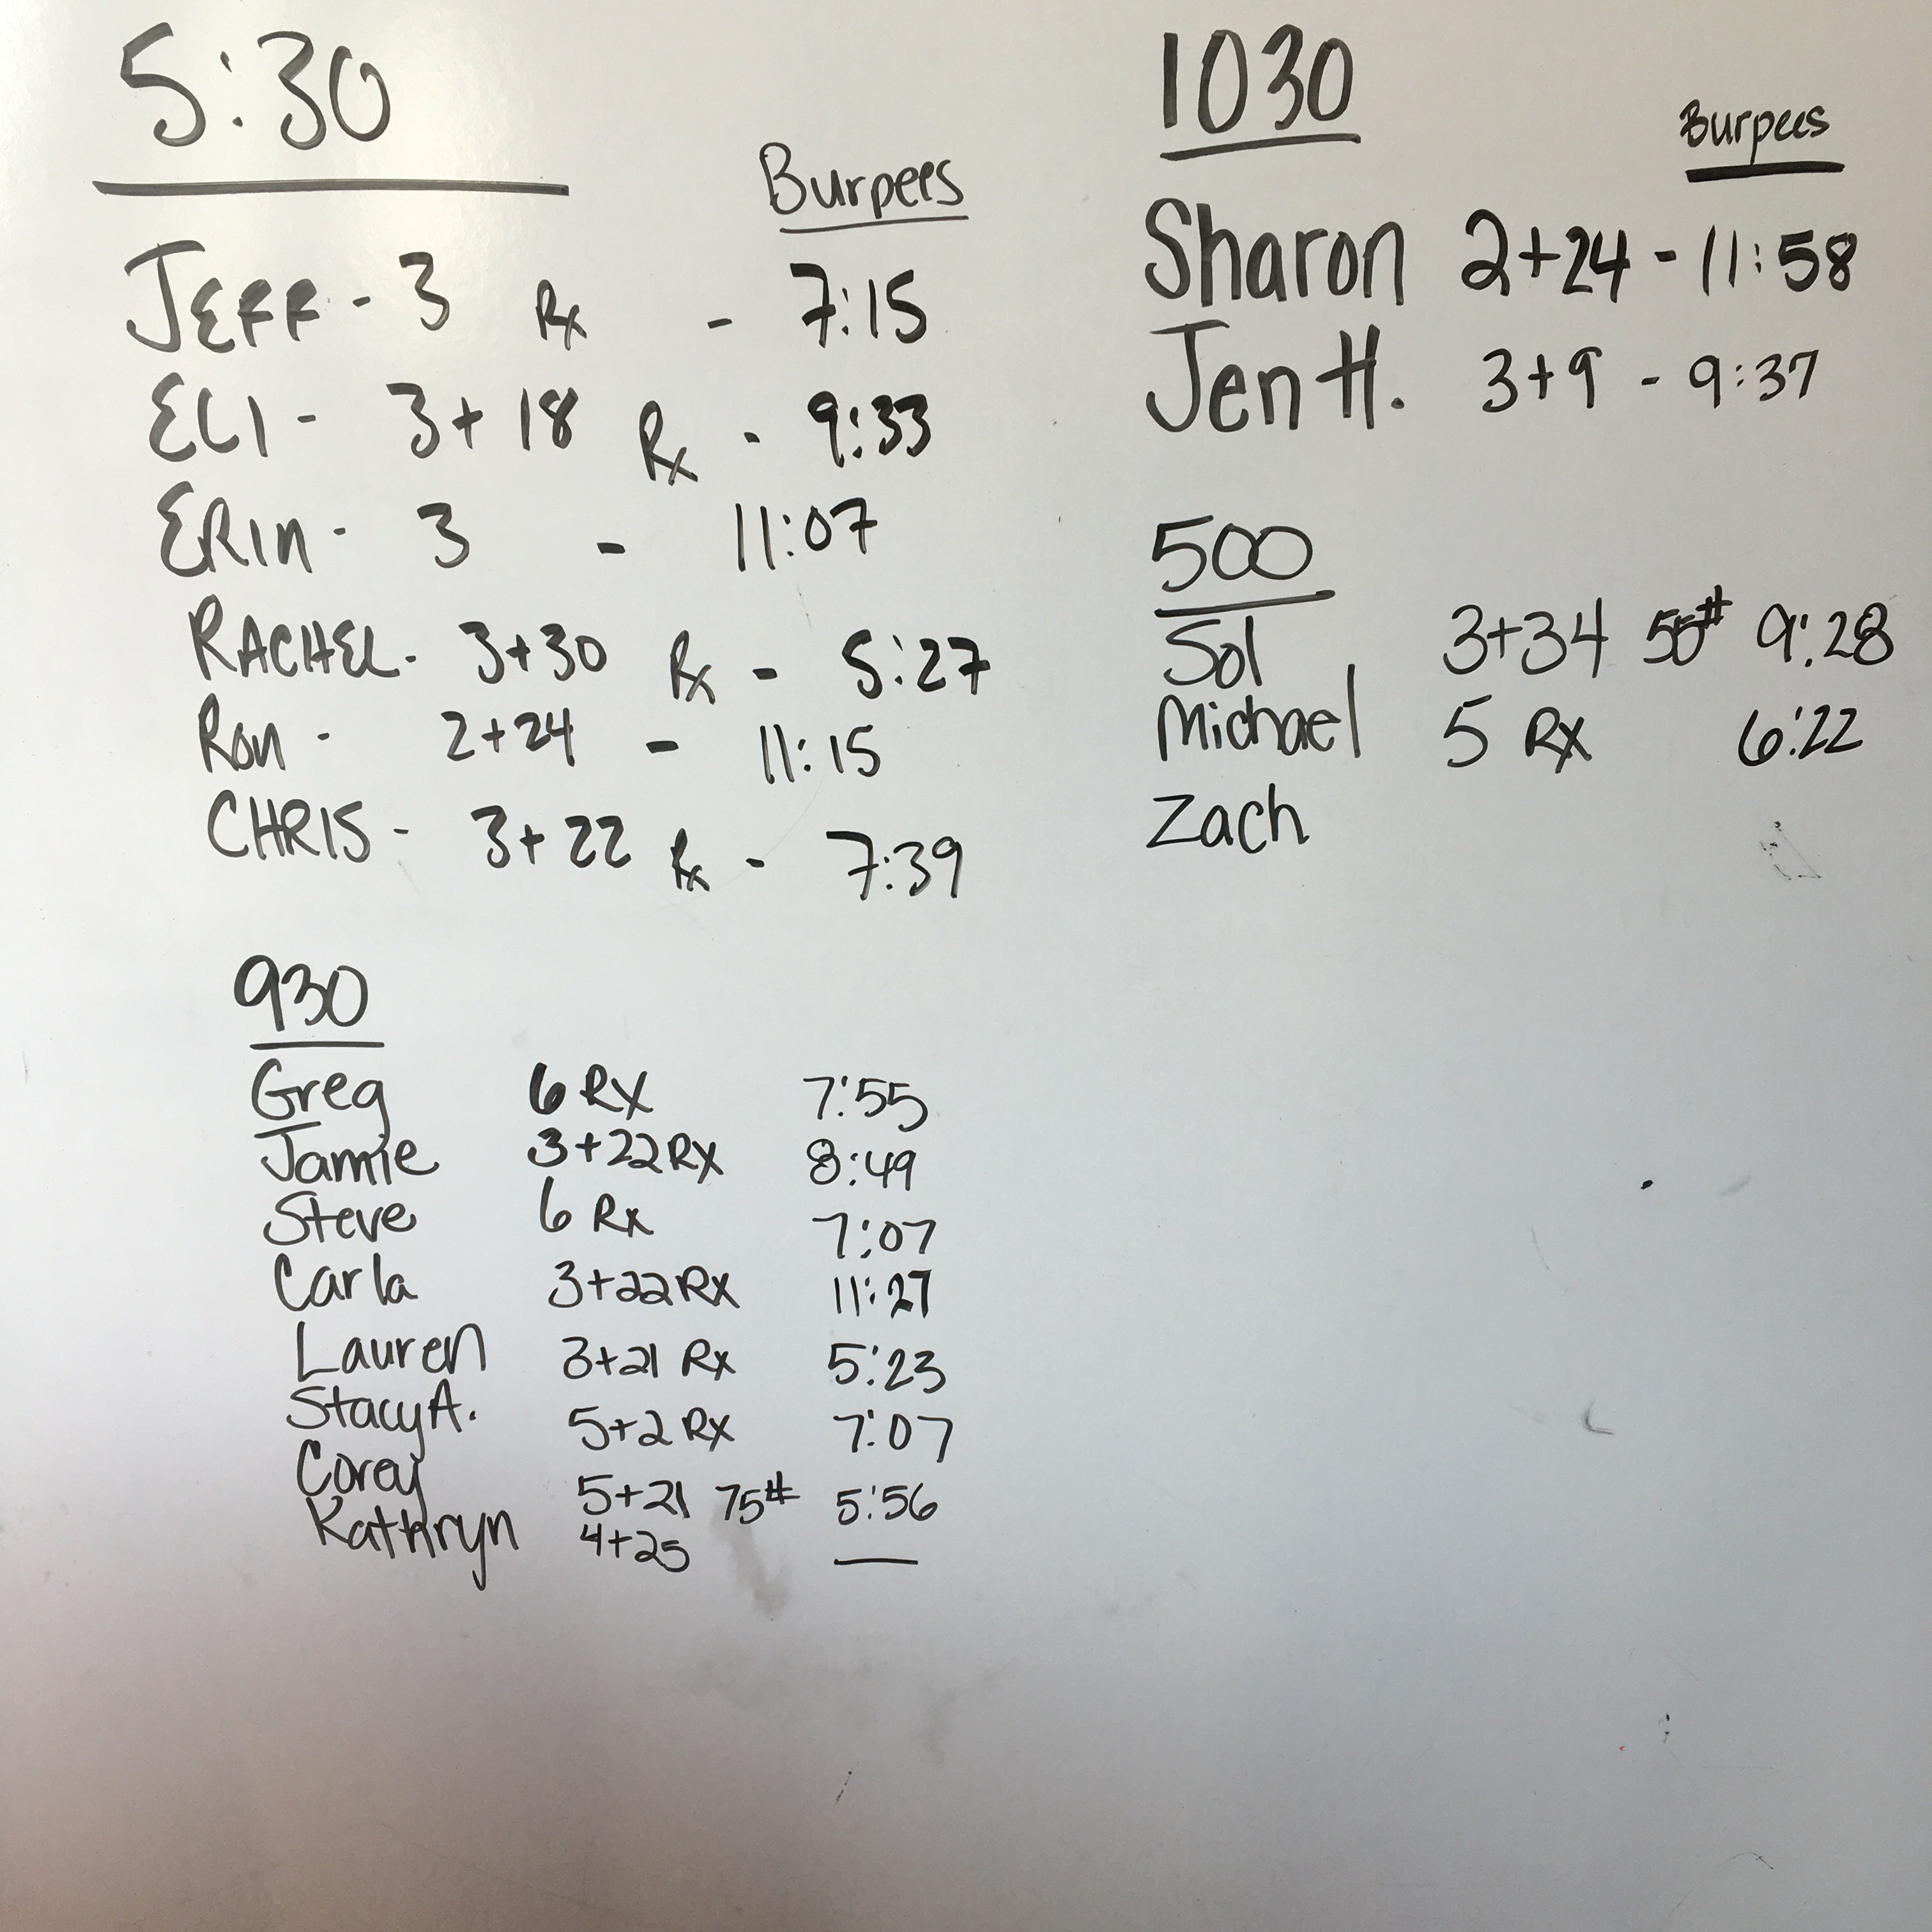 5:30
Burpees
JEFF - 3 Rx - 7:15
ELI - 3+18 Rx - 9:33
ERIN - 3 - 11:07
RACHEL - 3+30 Rx - 5:27
RON - 2+24 - 11:15
CHRIS - 3+22 Rx - 7:39
930
Greg 6 RX 7:55
Jamie 3+22 RX 8:49
Steve 6 Rx 7:07
Carla 3+22 RX 11:27
Lauren 3+21 Rx 5:23
Stacy A. 5+2 RX 7:07
Corey 5+21 75# 5:56
Kathryn 4+25 —
1030
Burpees
Sharon 2+24 - 11:58
Jen H. 3+9 - 9:37
500
Sol 3+34 55# 9:28
Michael 5 RX 6:22
Zach